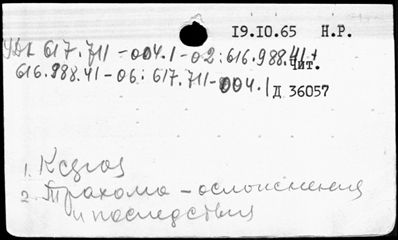 19.10.65 Н.Р.
УДК 617.711-004.1-02:616.988.41+
Чит.
616.988.41-06:617.711-004.1
Д 36057
1. Ксероз
2. Трахома - осложнения
и последствия